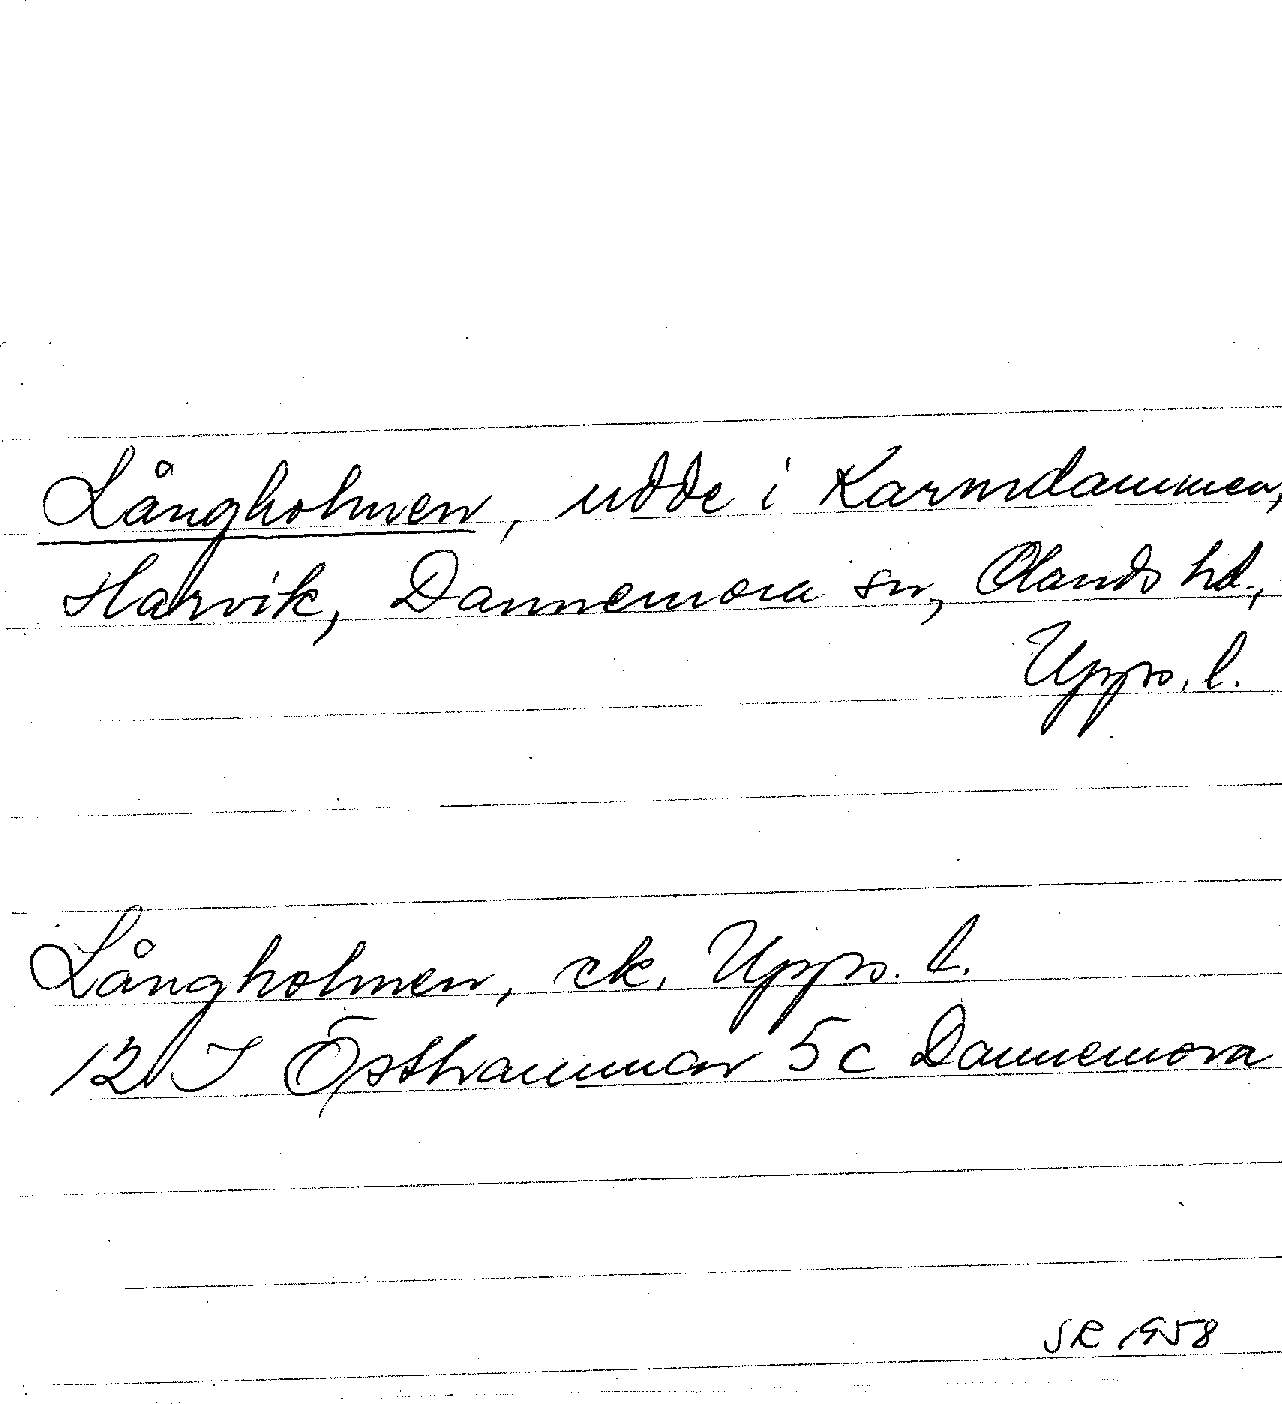 Långholmen, udde i Karmdammen,
Harvik, Dannemora sn, Olands hd.,
Upps. l.
Långholmen, ek. Upps. l.
12 I Östhammar 5 c Dannemora
SR 1958